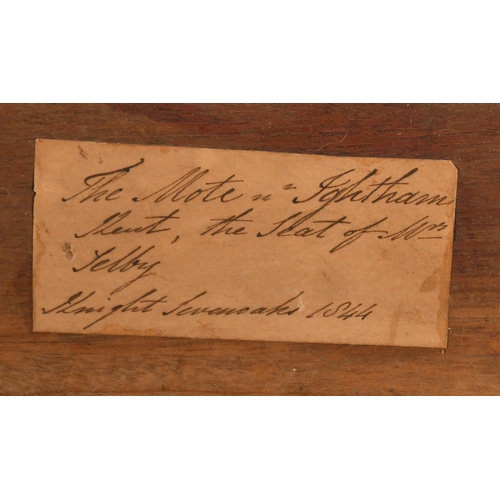 The Mote nr Ightham
Kent, the Seat of Mrs
Selby
Knight Sevenoaks 1844